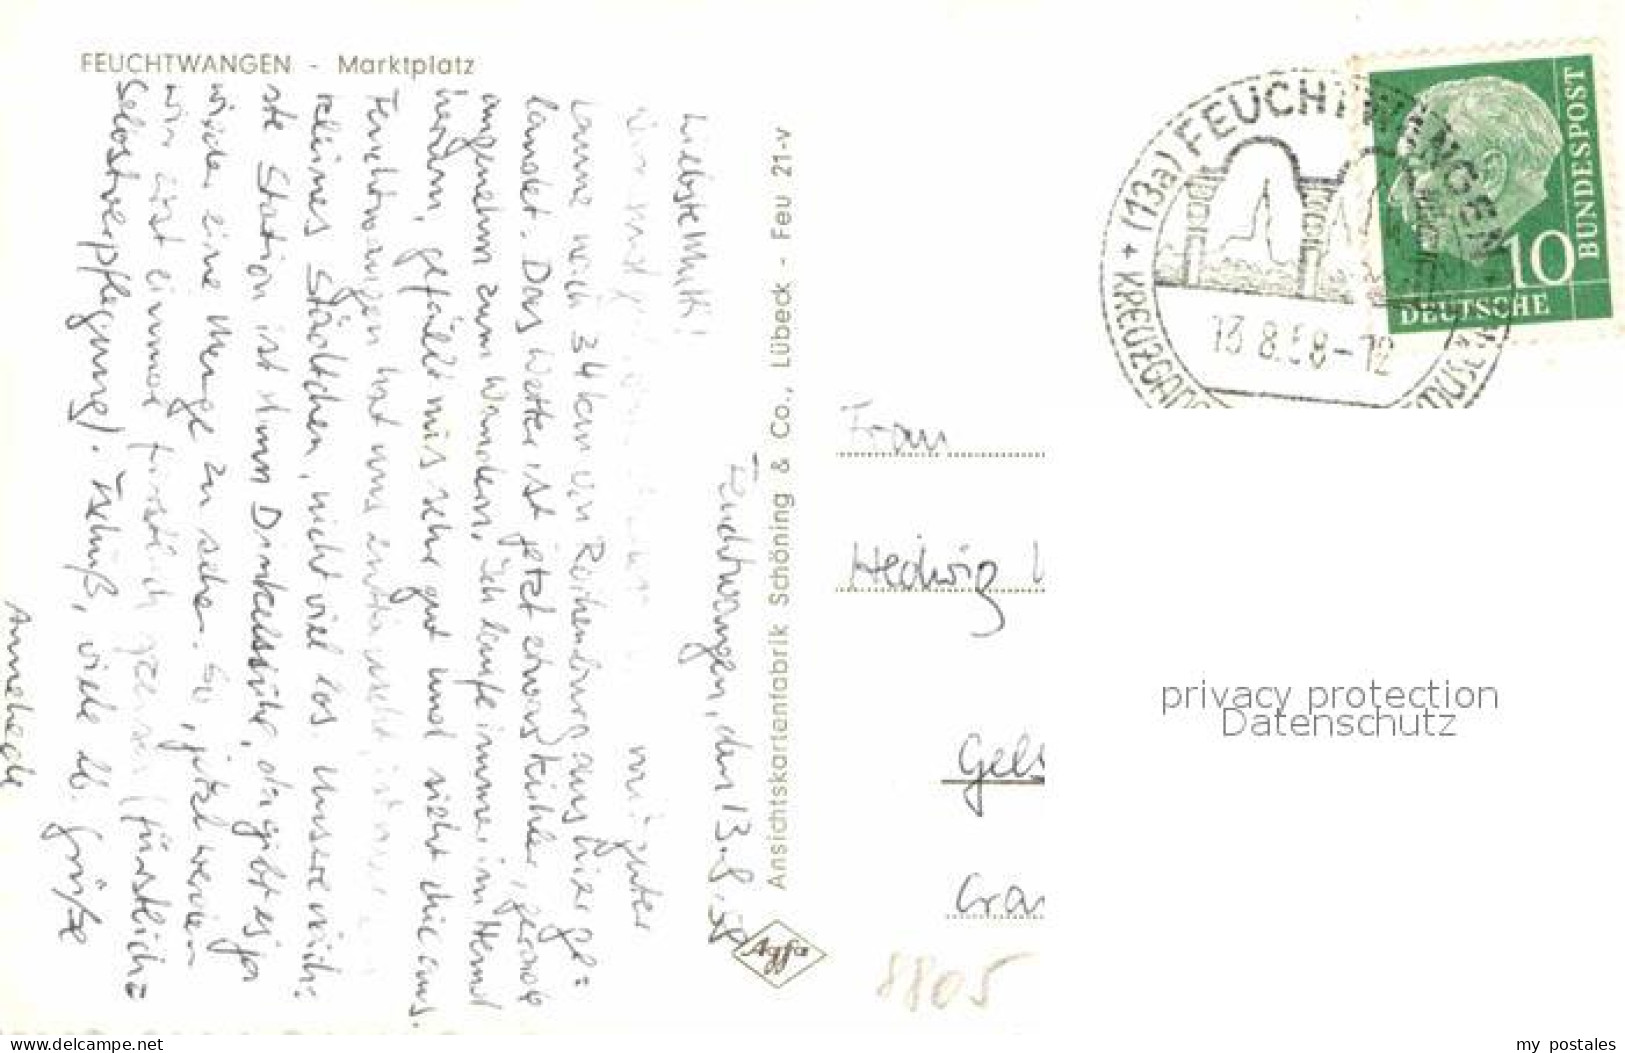 FEUCHTWANGEN - Marktplatz
Feuchtwangen, den 13.8.58
Liebste Mutti!
wir sind guter
Laune nach 34 km von Rothenburg aus hier ge=
landet. Das Wetter ist jetzt etwas kühler, gerade
angenehm zum Wandern. Ich laufe immer im Hemd
herum, gefällt mir sehr gut und sieht die aus.
Feuchtwangen hat uns
kleines Städtchen, nicht viel los. Unsere näch=
ste Station ist dann Dinkelsbühl, da gibt es ja
wieder eine Menge zu sehen. So, jetzt werden
wir erst einmal fürstlich (fürstliche
Selbstverpflegung). Tschüß, viele lb. Grüße
Annehede
Ansichtskartenfabrik Schöning & Co., Lübeck - Feu 21-v
Agfa
+ (13a) FEUCHTWANGEN +
KREUZGANG
13 8.58-12
10
DEUTSCHE
BUNDESPOST
Frau
Hedwig
8805
privacy protection
Datenschutz
www.delcampe.net
my_postales